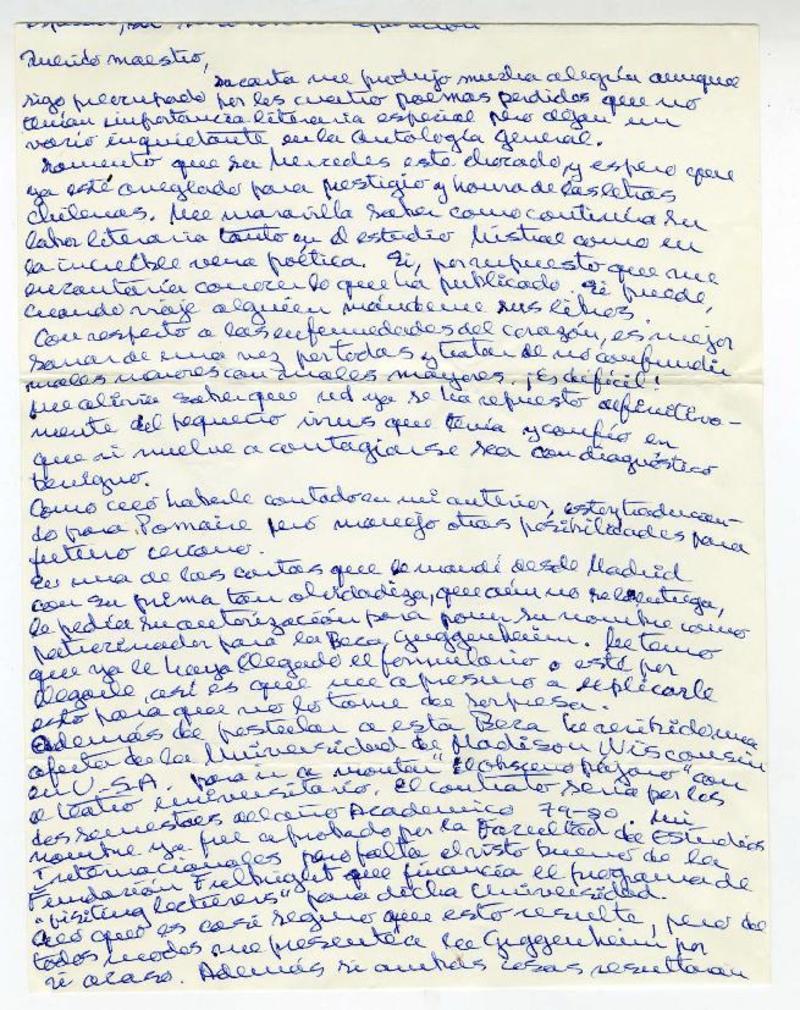 Querido maestro,
su carta me produjo mucha alegría aunque
sigo preocupado por los cuatro poemas perdidos que no
tenían importancia literaria especial pero dejan un
vacío inquietante en la Antología General.
Lamento que su Mercedes esté chocado, y espero que
ya esté arreglado para prestigio y honra de las letras
chilenas. Me maravilla saber como continúa su
labor literaria tanto en el estudio Mistral como en
la increíble vena poética. Si, por supuesto que me
encantaría conocer lo que ha publicado. Si puede,
cuando viaje alguien mándeme sus libros.
Con respecto a las enfermedades del corazón, es mejor
sanar de una vez por todas y tratar de no confundir
males menores con males mayores. ¡Es difícil!
Me alivia saber que ud ya se ha repuesto definitiva-
mente del pequeño virus que tenía y confío en
que si vuelve a contagiarse sea con diagnóstico
benigno.
Como creo haberle contado en mi anterior, estoy traducien-
do para Pomaire pero manejo otras posibilidades para
futuro cercano.
En una de las cartas que le mandé desde Madrid
con su prima tan olvidadiza, que aún no se la entrega,
le pedía su autorización para poner su nombre como
patrocinador para la Beca Guggenheim. Me temo
que ya le haya llegado el formulario o esté por
llegarle, así es que me apresuro a explicarle
esto para que no lo tome de sorpresa.
Además de postular a esta Beca he recibido una
oferta de la Universidad de Madison Wisconsin
en U.S.A. para ir a montar "El obsceno pájaro" con
el teatro universitario. El contrato sería por los
dos semestres del año Académico 79-80. Mi
nombre ya fue aprobado por la Facultad de Estudios
Internacionales pero falta el visto bueno de la
Fundación Fulbright que financia el programa de
"visiting lecturers" para dicha Universidad.
Creo que es casi seguro que esto resulte, pero de
todos modos me presenté a la Guggenheim por
si acaso. Además si ambas cosas resultaran